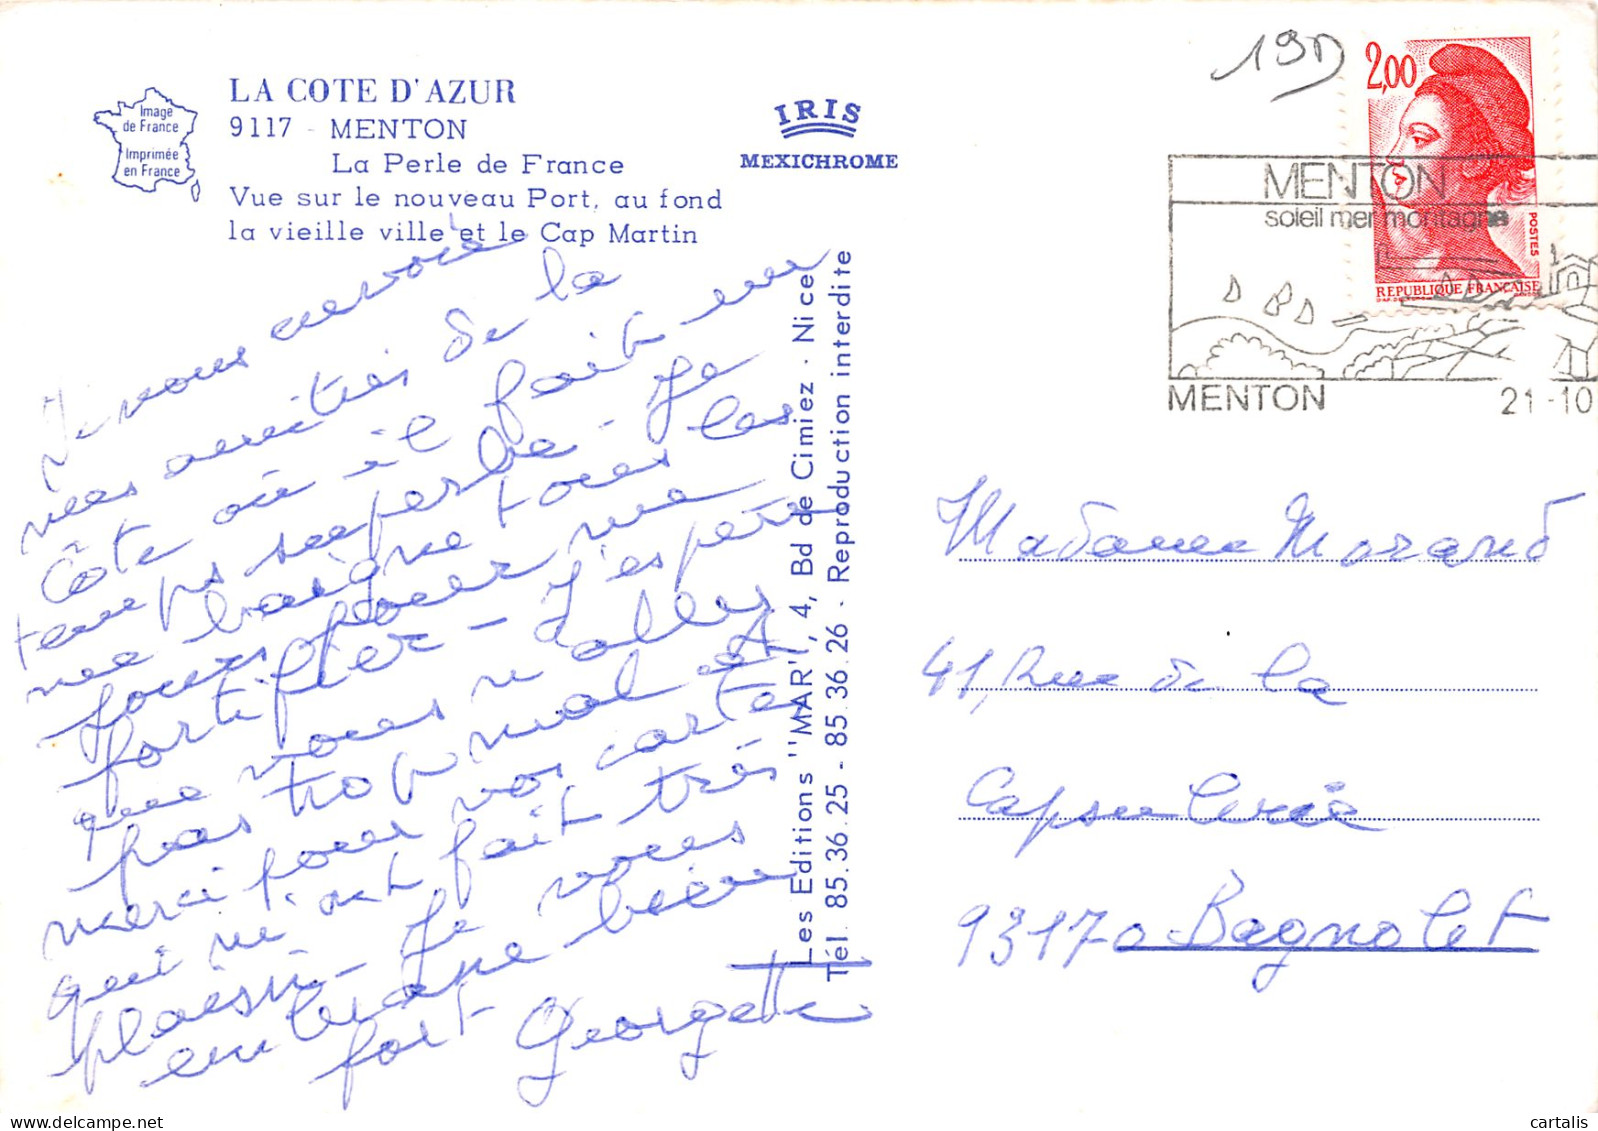 Image
de France
Imprimée
en France
LA COTE D'AZUR
9117 - MENTON
La Perle de France
Vue sur le nouveau Port, au fond
la vieille ville et le Cap Martin
IRIS
MEXICHROME
19D
2,00
POSTES
REPUBLIQUE FRANÇAISE
MENTON
soleil mer montagne
MENTON 21-10
Je vous envoie
mes amitiés de la
Côte où il fait un
temps superbe - Je
me baigne tous les
jours pour me
fortifier - J'espère
que vous n'allez
pas trop mal et
merci pour vos cartes
qui m'ont fait très
plaisir - Je vous
embrasse bien
fort Georgette
Les Editions "MAR", 4, Bd de Cimiez - Nice
Tél. 85.36.25 - 85.36.26 - Reproduction interdite
Madame Morand
41, Rue de la
Capsulerie
93170 Bagnolet
cartalis